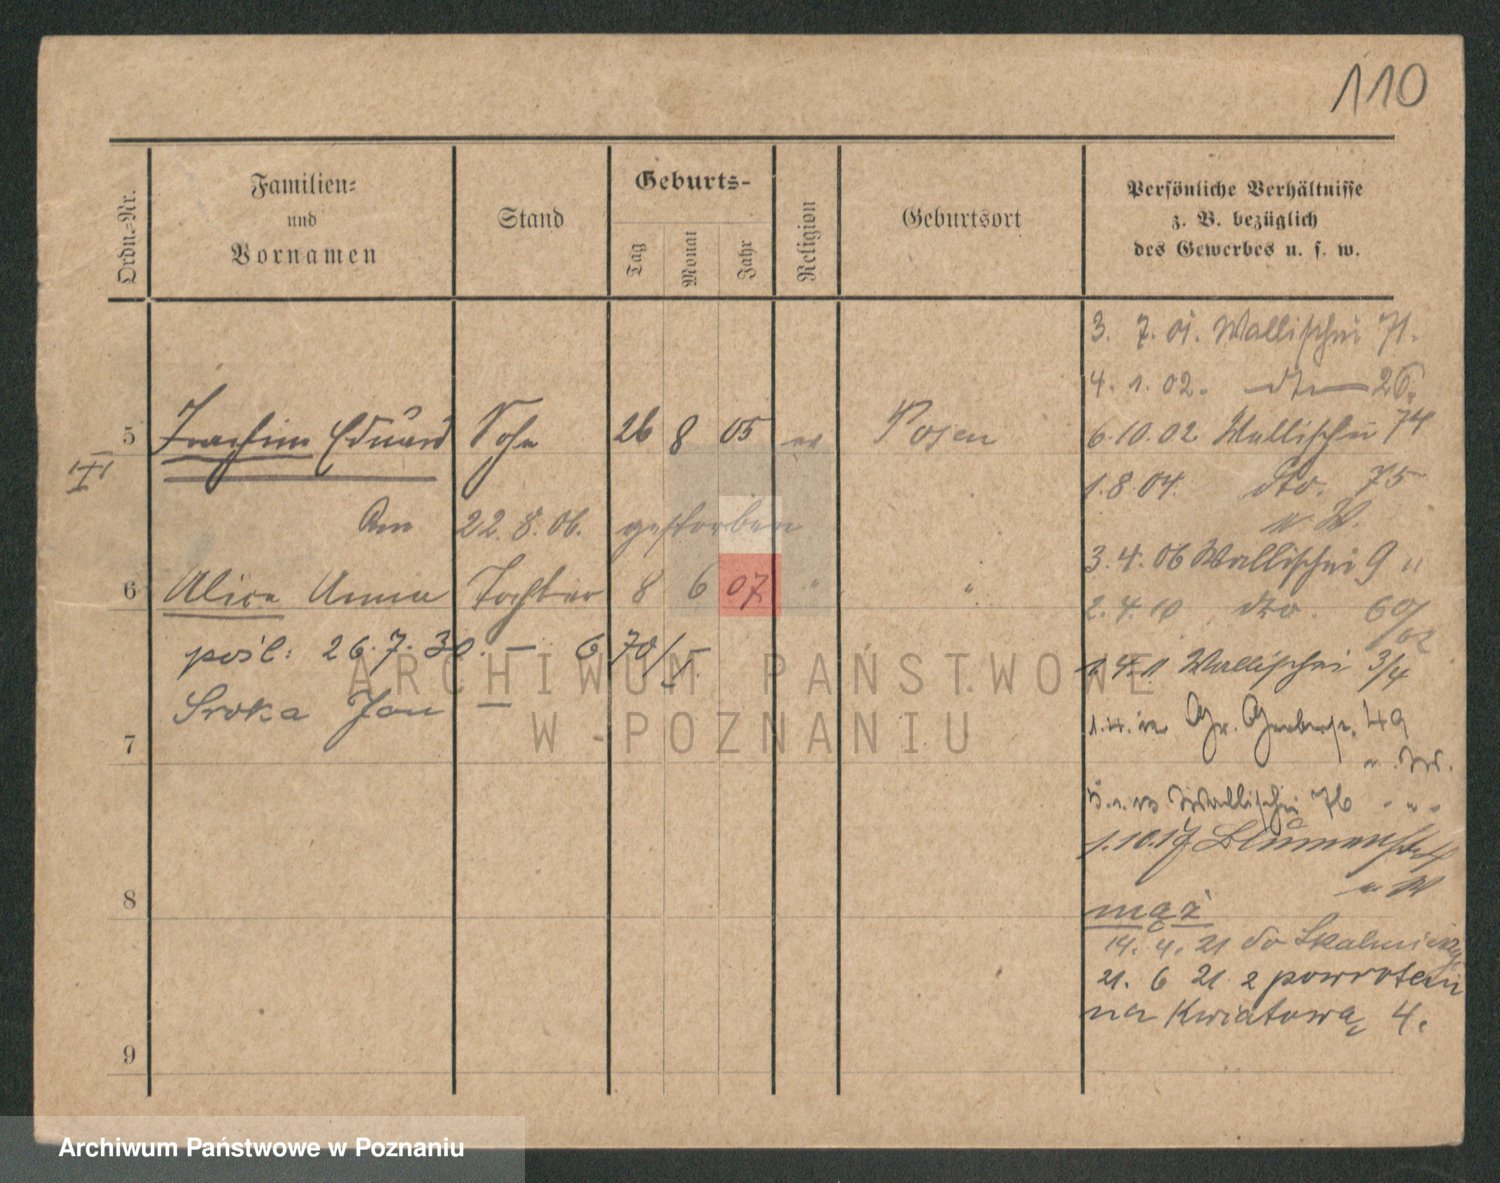 110
Ordn.-Nr.
Familien-
und
Vornamen
Stand
Geburts-
Tag
Monat
Jahr
Religion
Geburtsort
Persönliche Verhältnisse
z. B. bezüglich
des Gewerbes u. s. w.
3. 7. 01. Wallischei 71.
4. 1. 02. dto 26.
5 Joachim Eduard Sohn 26 8 05 Posen
6.10.02 Wallischei 74
III
1.8.04. dto. 75
Am 22.8.06. gestorben
3.4.06 Wallischei 9 "
6 Alice Anna Tochter 8 6 07 " "
2.4.10 dto.
pośl: 26.7.30. — 6 70/5.
Wallischei 3/4
Sroka Jan —
Gr. Gerberstr. 49
7
Wallischei 76 - " -
1.10.17 Blumenstr
8
mąż
14. 4. 21 do Skalmierzyc
21. 6 21 z powrotem
na Kwiatową 4.
9
ARCHIWUM PAŃSTWOWE
W POZNANIU
Archiwum Państwowe w Poznaniu